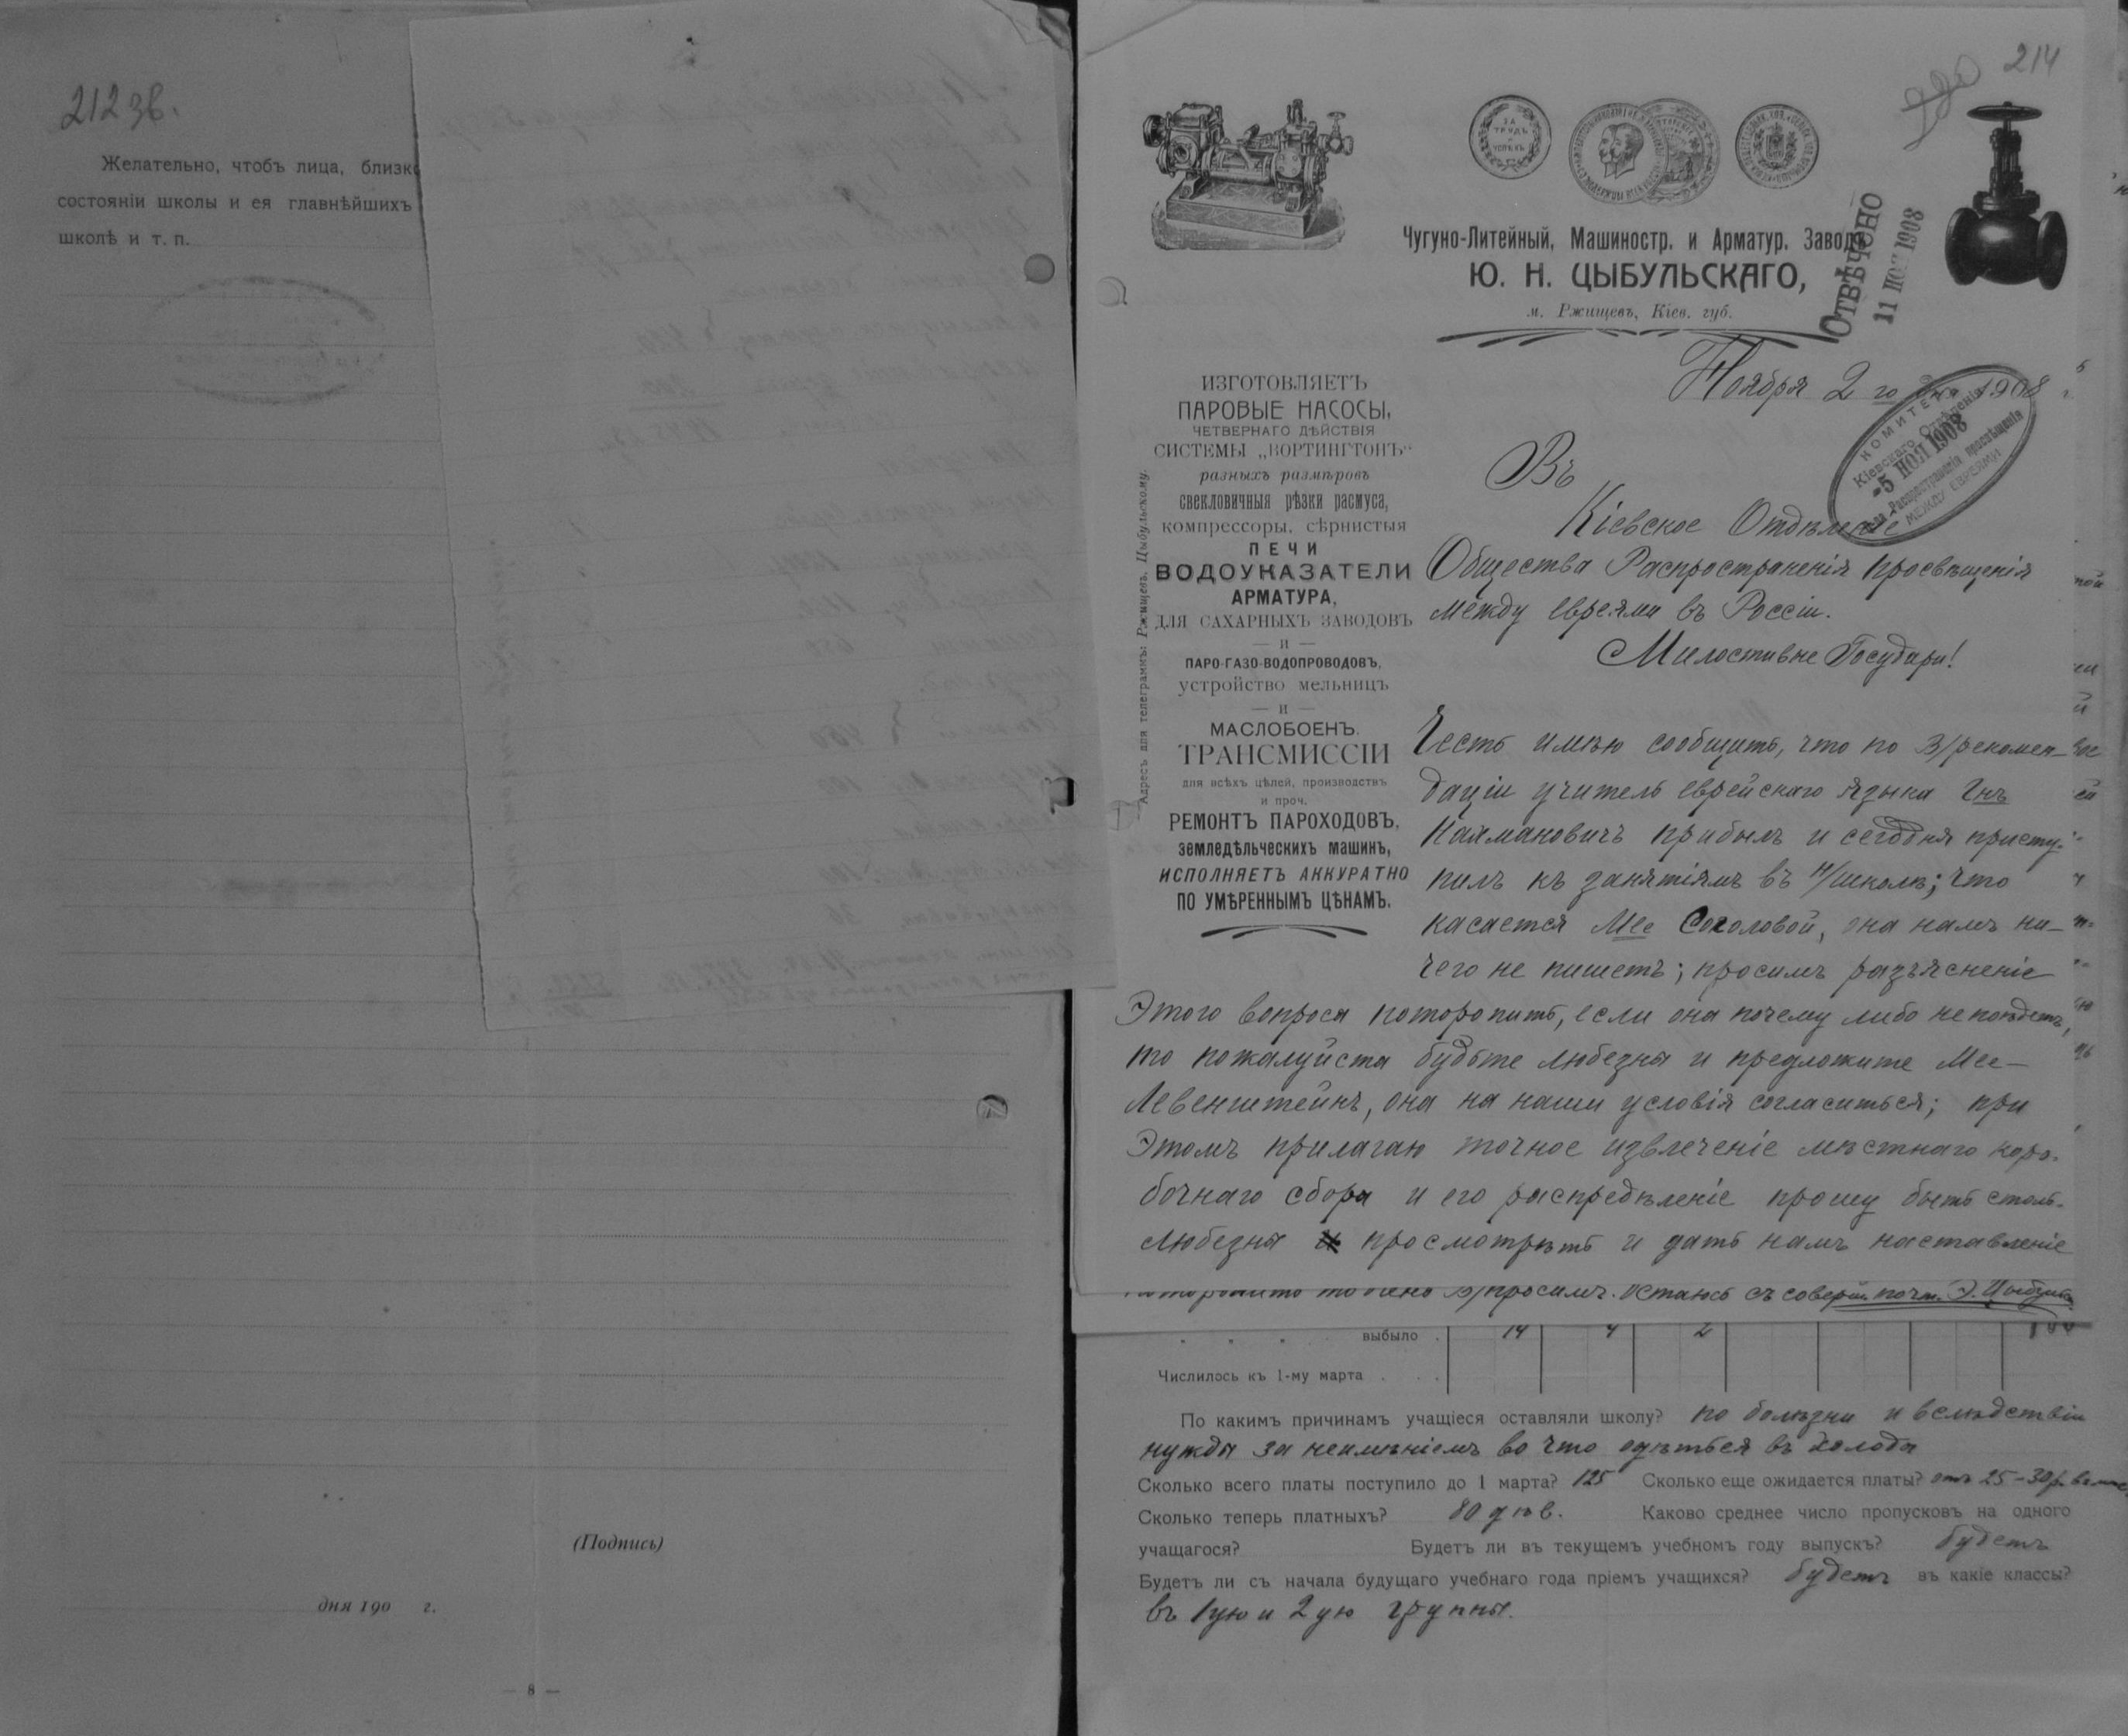 212 зв.
Желательно, чтобъ лица, близко
состояніи школы и ея главнѣйшихъ
школѣ и т. п.
(Подпись)
дня 190 г.
— 8 —
214
ЗА ТРУДЪ УСПѢХЪ
Чугуно-Литейный, Машиностр. и Арматур. Заводъ
Ю. Н. ЦЫБУЛЬСКАГО,
м. Ржищевъ, Кіев. губ.
ОТВѢЧЕНО
11 НОЯ 1908
Ноября 2 го дня 1908 г.
КОМИТЕТЪ
Кіевскаго Отдѣленія
-5 НОЯ 1908
Распространенія просвѣщенія
МЕЖДУ ЕВРЕЯМИ
Адресъ для телеграммъ: Ржищевъ, Цыбульскому.
ИЗГОТОВЛЯЕТЪ
ПАРОВЫЕ НАСОСЫ,
ЧЕТВЕРНАГО ДѢЙСТВІЯ
СИСТЕМЫ „ВОРТИНГТОНЪ“
разныхъ размѣровъ
свекловичныя рѣзки расмуса,
компрессоры, сѣрнистыя
ПЕЧИ
ВОДОУКАЗАТЕЛИ
АРМАТУРА,
ДЛЯ САХАРНЫХЪ ЗАВОДОВЪ
— И —
ПАРО-ГАЗО-ВОДОПРОВОДОВЪ,
устройство мельницъ
— И —
МАСЛОБОЕНЪ.
ТРАНСМИССІИ
для всѣхъ цѣлей, производствъ
и проч.
РЕМОНТЪ ПАРОХОДОВЪ,
земледѣльческихъ машинъ,
ИСПОЛНЯЕТЪ АККУРАТНО
ПО УМѢРЕННЫМЪ ЦѢНАМЪ.
Въ
Кіевское Отдѣленіе
Общества Распространенія просвѣщенія
между евреями въ Россіи.
Милостивые Государи!
Честь имѣю сообщить, что по В/рекомен-
даціи учитель еврейскаго языка Гнъ
Калмановичъ прибылъ и сегодня присту-
пилъ къ занятіямъ въ н/школѣ; что
касается Mlle Соколовой, она намъ ни-
чего не пишетъ; просимъ разъясненіе
Этого вопроса поторопить, если она почему либо не поѣдетъ,
то пожалуйста будьте любезны и предложите Mlle-
Левенштейнъ, она на наши условія согласиться; при
Этомъ прилагаю точное извлеченіе мѣстнаго коро-
бочнаго сбора и его распредѣленіе прошу быть столь-
любезны просмотрѣть и дать намъ наставленіе
просимъ. Остаюсь съ соверш. почт. Э. Цыбульс
выбыло . 14 4 2
Числилось къ 1-му марта . . .
По какимъ причинамъ учащіеся оставляли школу? по болѣзни и вслѣдствіи
нужды за неимѣніемъ во что одѣться въ холода
Сколько всего платы поступило до 1 марта? 125 Сколько еще ожидается платы? отъ 25-30 р. въ
Сколько теперь платныхъ? 80 дѣв. Каково среднее число пропусковъ на одного
учащагося? Будетъ ли въ текущемъ учебномъ году выпускъ? будетъ
Будетъ ли съ начала будущаго учебнаго года пріемъ учащихся? будетъ въ какіе классы?
въ 1ую и 2ую группы.